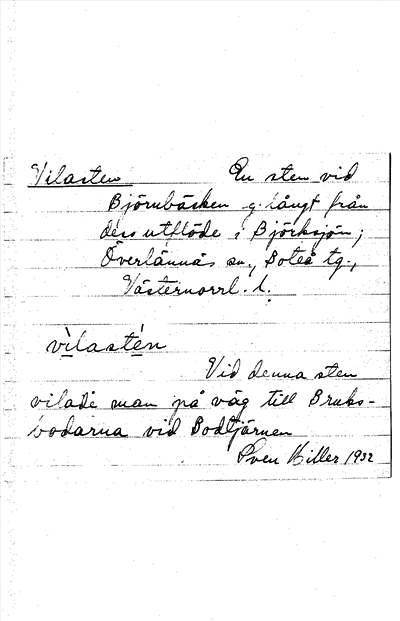 Vilasten En sten vid
Björnbäcken g. långt från
dess utflöde i Björksjön;
Överlännäs sn., Boteå tg.,
Västernorrl. l.
vìlastén
Vid denna sten
vilade man på väg till Bruks-
bodarna vid Bodtjärnen
Sven Hiller 1932